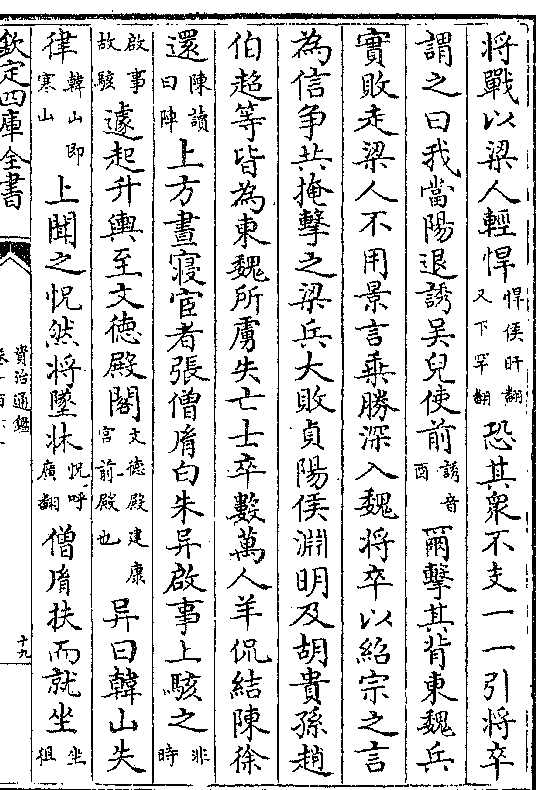 将戰以梁人輕悍悍侯旰翻又下罕翻恐其衆不支一一引將卒
謂之曰我當陽退誘吳兒使前誘音酉爾擊其背東魏兵
實敗走梁人不用景言乗勝深入魏將卒以紹宗之言
為信争共掩擊之梁兵大敗貞陽侯淵明及胡貴孫趙
伯超等皆為東魏所虜失亡士卒數萬人羊侃結陳徐
還陳讀曰陣上方晝寢宦者張僧𦙍白朱异啟事上駭之非時
啟事故駭遽起升輿至文德殿閤文德殿建康宫前殿也异曰韓山失
律韓山即寒山上聞之怳然將墜牀怳呼廣翻僧𦙍扶而就坐坐徂
欽定四庫全書
資治通鑑
十九